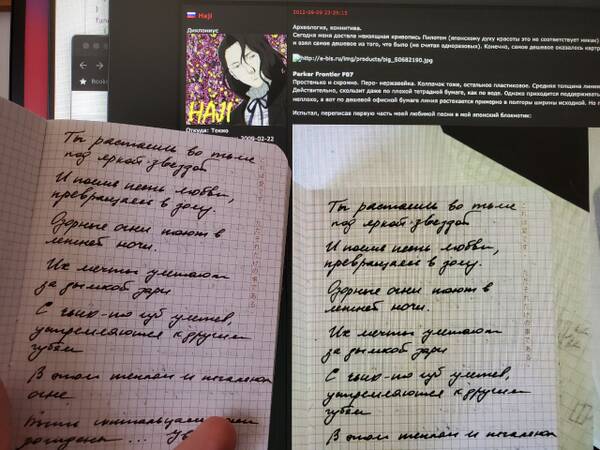 Haji
2012-09-09 23:29:15
Диклониус
HAJI
Откуда: Токио
2009-02-22
Археология, конитива.
Сегодня меня достала некаящная кривопись Пилотом (японскому духу красоты это не соответствует никак)
и взял самое дешевое из того, что было (не считая одноразовых). Конечно, самое дешевое оказалось
http://e-bis.ru/img/products/big_S0682190.jpg
Parker Frontier F07
Простенько и скромно. Перо- нержавейка. Колпачок тоже, остальное пластиковое. Средняя толщина
Действительно, скользит даже по плохой тетрадной бумаге, как по воде. Однако приходится поддерживать
неплохо, а вот по дешевой офисной бумаге линия растекается примерно в полторы ширины исходной. Но
Испытал, переписав первую часть моей любимой песни в мой японский блокнотик:
Ты растаешь во тьме
под яркой звездой
И после петь любви,
превращаясь в золу.
Озорные огни поют в
летней ночи.
Их мечты улетают
за дымкой зари
С чьих-то губ улетев,
устремляются к другим
губам
В этом теплом и печальном
огне
Ты растаешь во тьме
под яркой звездой
И после петь любви,
превращаясь в золу.
Озорные огни поют в
летней ночи.
Их мечты улетают
за дымкой зари
С чьих-то губ улетев,
устремляются к другим
губам
В этом теплом и печальном